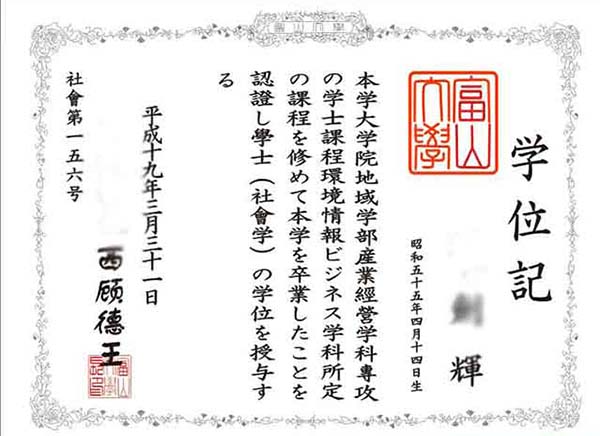 学位記
輝
昭和五十五年四月十四日生
富山大學
本学大学院地域学部産業經營学科専攻
の学士課程環境情報ビジネス学科所定
の課程を修めて本学を卒業したことを
認證し學士(社會学)の学位を授与す
る
平成十九年三月三十一日
西顾德王
社會第一五六号